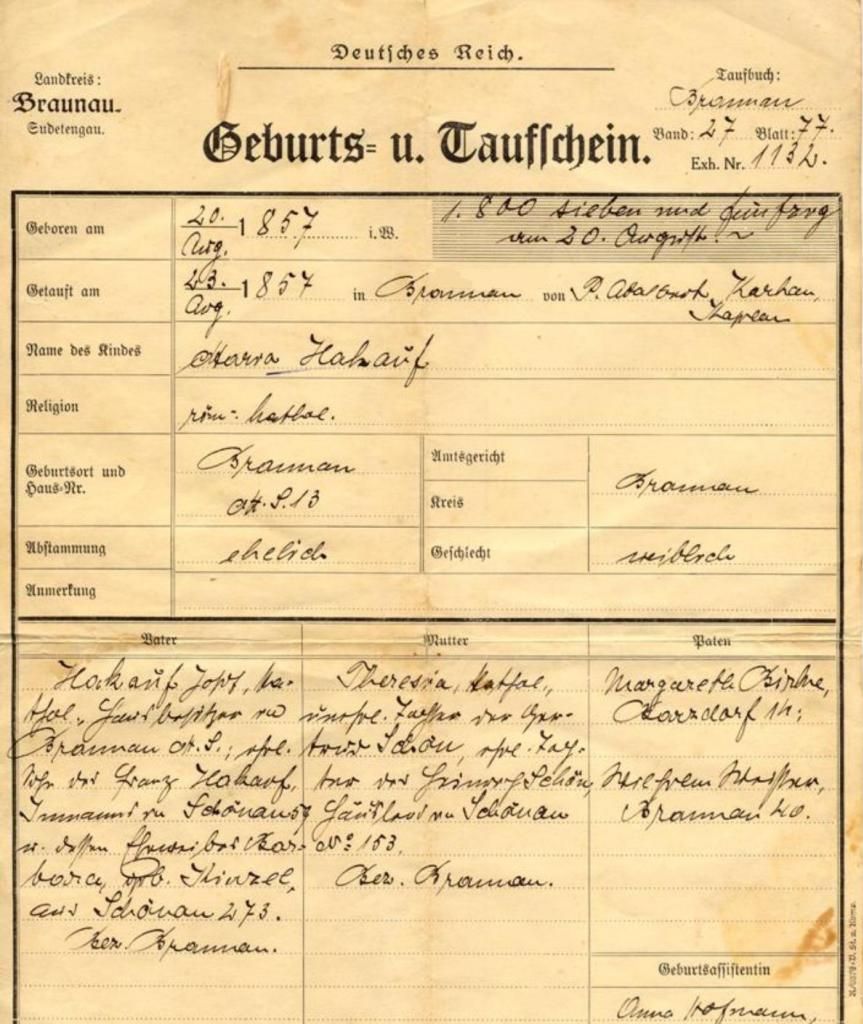 Deutsches Reich.
Landkreis:
Braunau.
Sudetengau.
Taufbuch:
Braunau
Band: 27 Blatt: 77.
Exh. Nr. 1132.
Geburts= u. Taufschein.
Geboren am 20. Aug. 1857 i. W. 1.800 sieben und fünfzig
am 20. August.
Getauft am 23. Aug. 1857 in Braunau von P. Adalbert Karhan,
Kaplan
Name des Kindes Maria Hakauf
Religion röm.-kathol.
Geburtsort und
Haus=Nr.
Braunau
O.S. 13
Amtsgericht
Kreis
Braunau
Abstammung ehelich Geschlecht weiblich
Anmerkung
Vater
Hakauf Josef, ka-
thol., Hausbesitzer in
Braunau O.S.; ehel.
Sohn des Franz Hakauf,
Inmanns in Schönau 59
u. dessen Eheweibes Bar-
bara, geb. Kinzel,
aus Schönau 273.
Bez. Braunau.
Mutter
Theresia, kathol.,
unehl. Tochter der Ger-
trud Schön, ehel. Toch-
ter des Heinrich Schön,
in Schönau
No 153.
Bez. Braunau.
Paten
Margareth Birke,
Barzdorf 14;
Wilhelm Meissner,
Braunau 40.
Geburtsassistentin
Anna Hofmann,